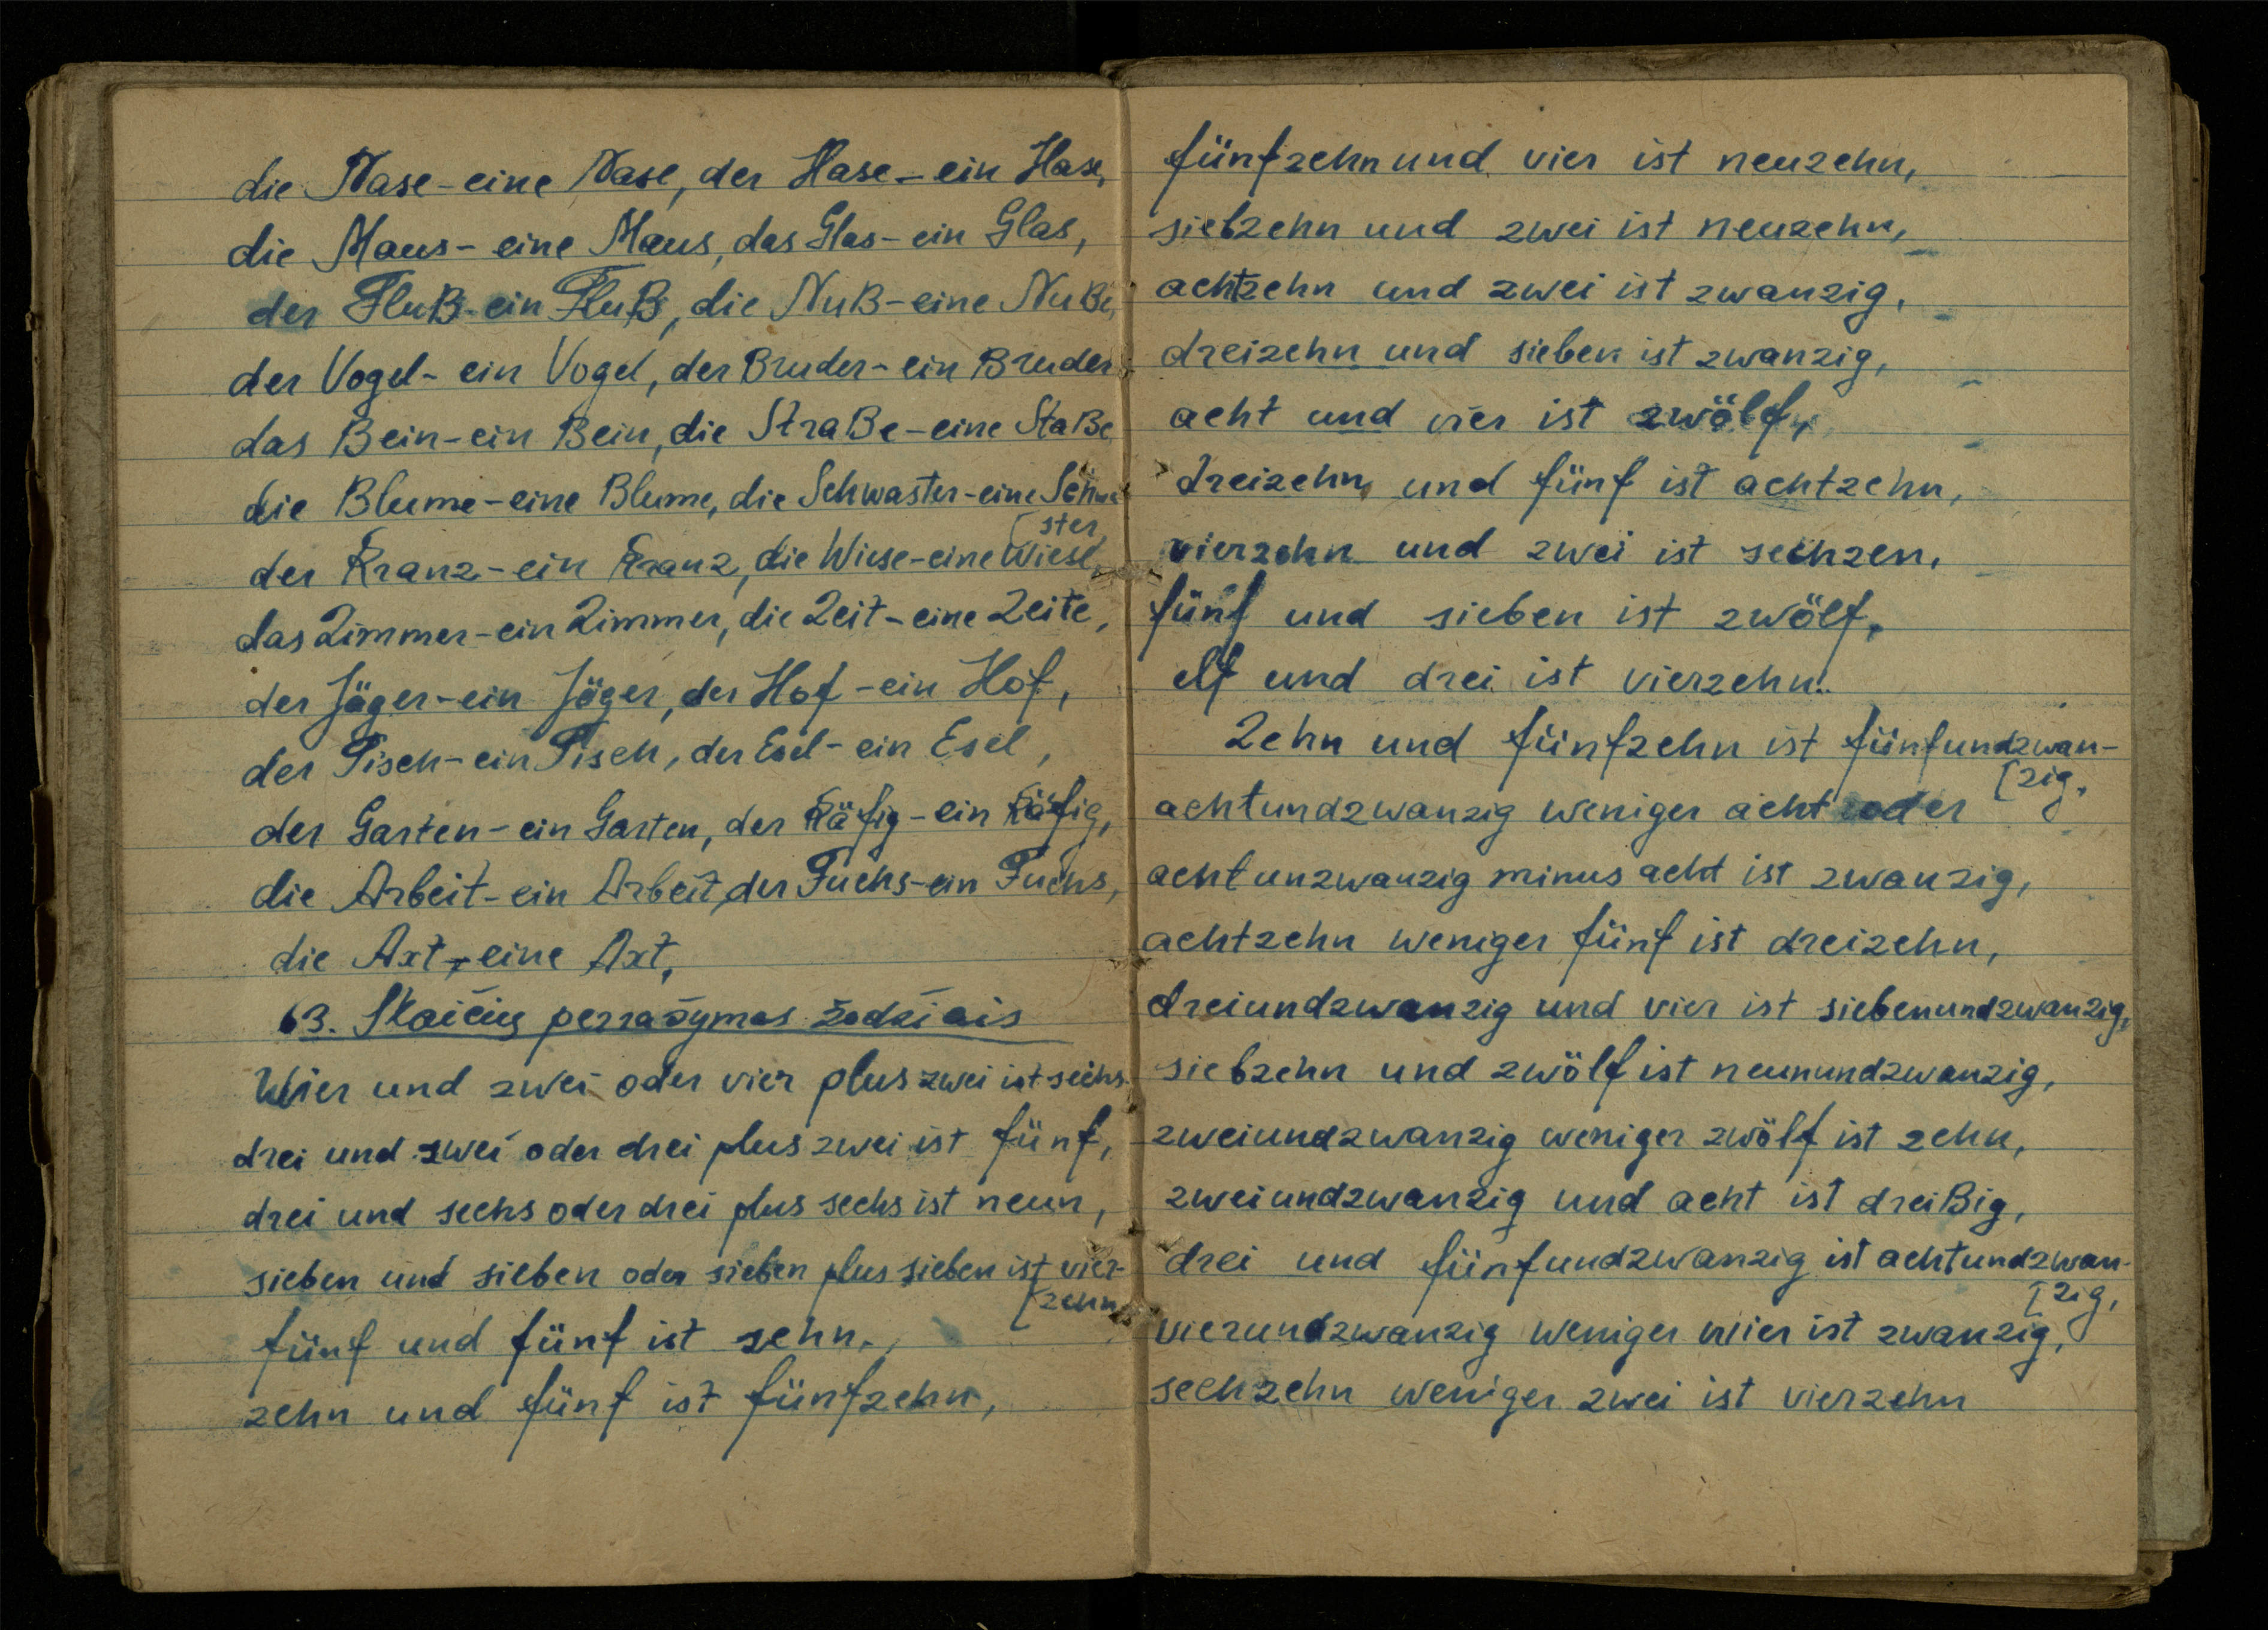 die Nase - eine Nase, der Hase - ein Hase,
die Maus - eine Maus, das Glas - ein Glas,
der Fluß - ein Fluß, die Nuß - eine Nuß,
der Vogel - ein Vogel, der Bruder - ein Bruder
das Bein - ein Bein, die Straße - eine Staße
die Blume - eine Blume, die Schwaster - eine Schwa
[ster,
der Kranz - ein Kranz, die Wiese - eine Wiese,
das Zimmer - ein Zimmer, die Zeit - eine Zeite,
der Jäger - ein Jäger, der Hof - ein Hof,
der Tisch - ein Tisch, der Esel - ein Esel,
der Garten - ein Garten, der Käfig - ein Käfig,
die Arbeit - ein Arbeit, der Fuchs - ein Fuchs,
die Axt - eine Axt,
63. Skaičių perrašymas žodžiais
Vier und zwei oder vier plus zwei ist sechs.
drei und zwei oder drei plus zwei ist fünf,
drei und sechs oder drei plus sechs ist neun,
sieben und sieben oder sieben plus sieben ist vier-
[zehn,
fünf und fünf ist zehn,
zehn und fünf ist fünfzehn,
fünfzehn und vier ist neuzehn,
siebzehn und zwei ist neuzehn,
achtzehn und zwei ist zwanzig,
dreizehn und sieben ist zwanzig,
acht und vier ist zwölf,
dreizehn und fünf ist achtzehn,
vierzehn und zwei ist sechzen,
fünf und sieben ist zwölf,
elf und drei ist vierzehn.
Zehn und fünfzehn ist fünfundzwan-
[zig,
achtundzwanzig weniger acht oder
achtunzwanzig minus acht ist zwanzig,
achtzehn weniger fünf ist dreizehn,
dreiundzwanzig und vier ist siebenundzwanzig,
siebzehn und zwölf ist neunundzwanzig,
zweiundzwanzig weniger zwölf ist zehn,
zweiundzwanzig und acht ist dreißig,
drei und fünfundzwanzig ist achtundzwan-
[zig,
vierundzwanzig weniger vier ist zwanzig,
sechzehn weniger zwei ist vierzehn